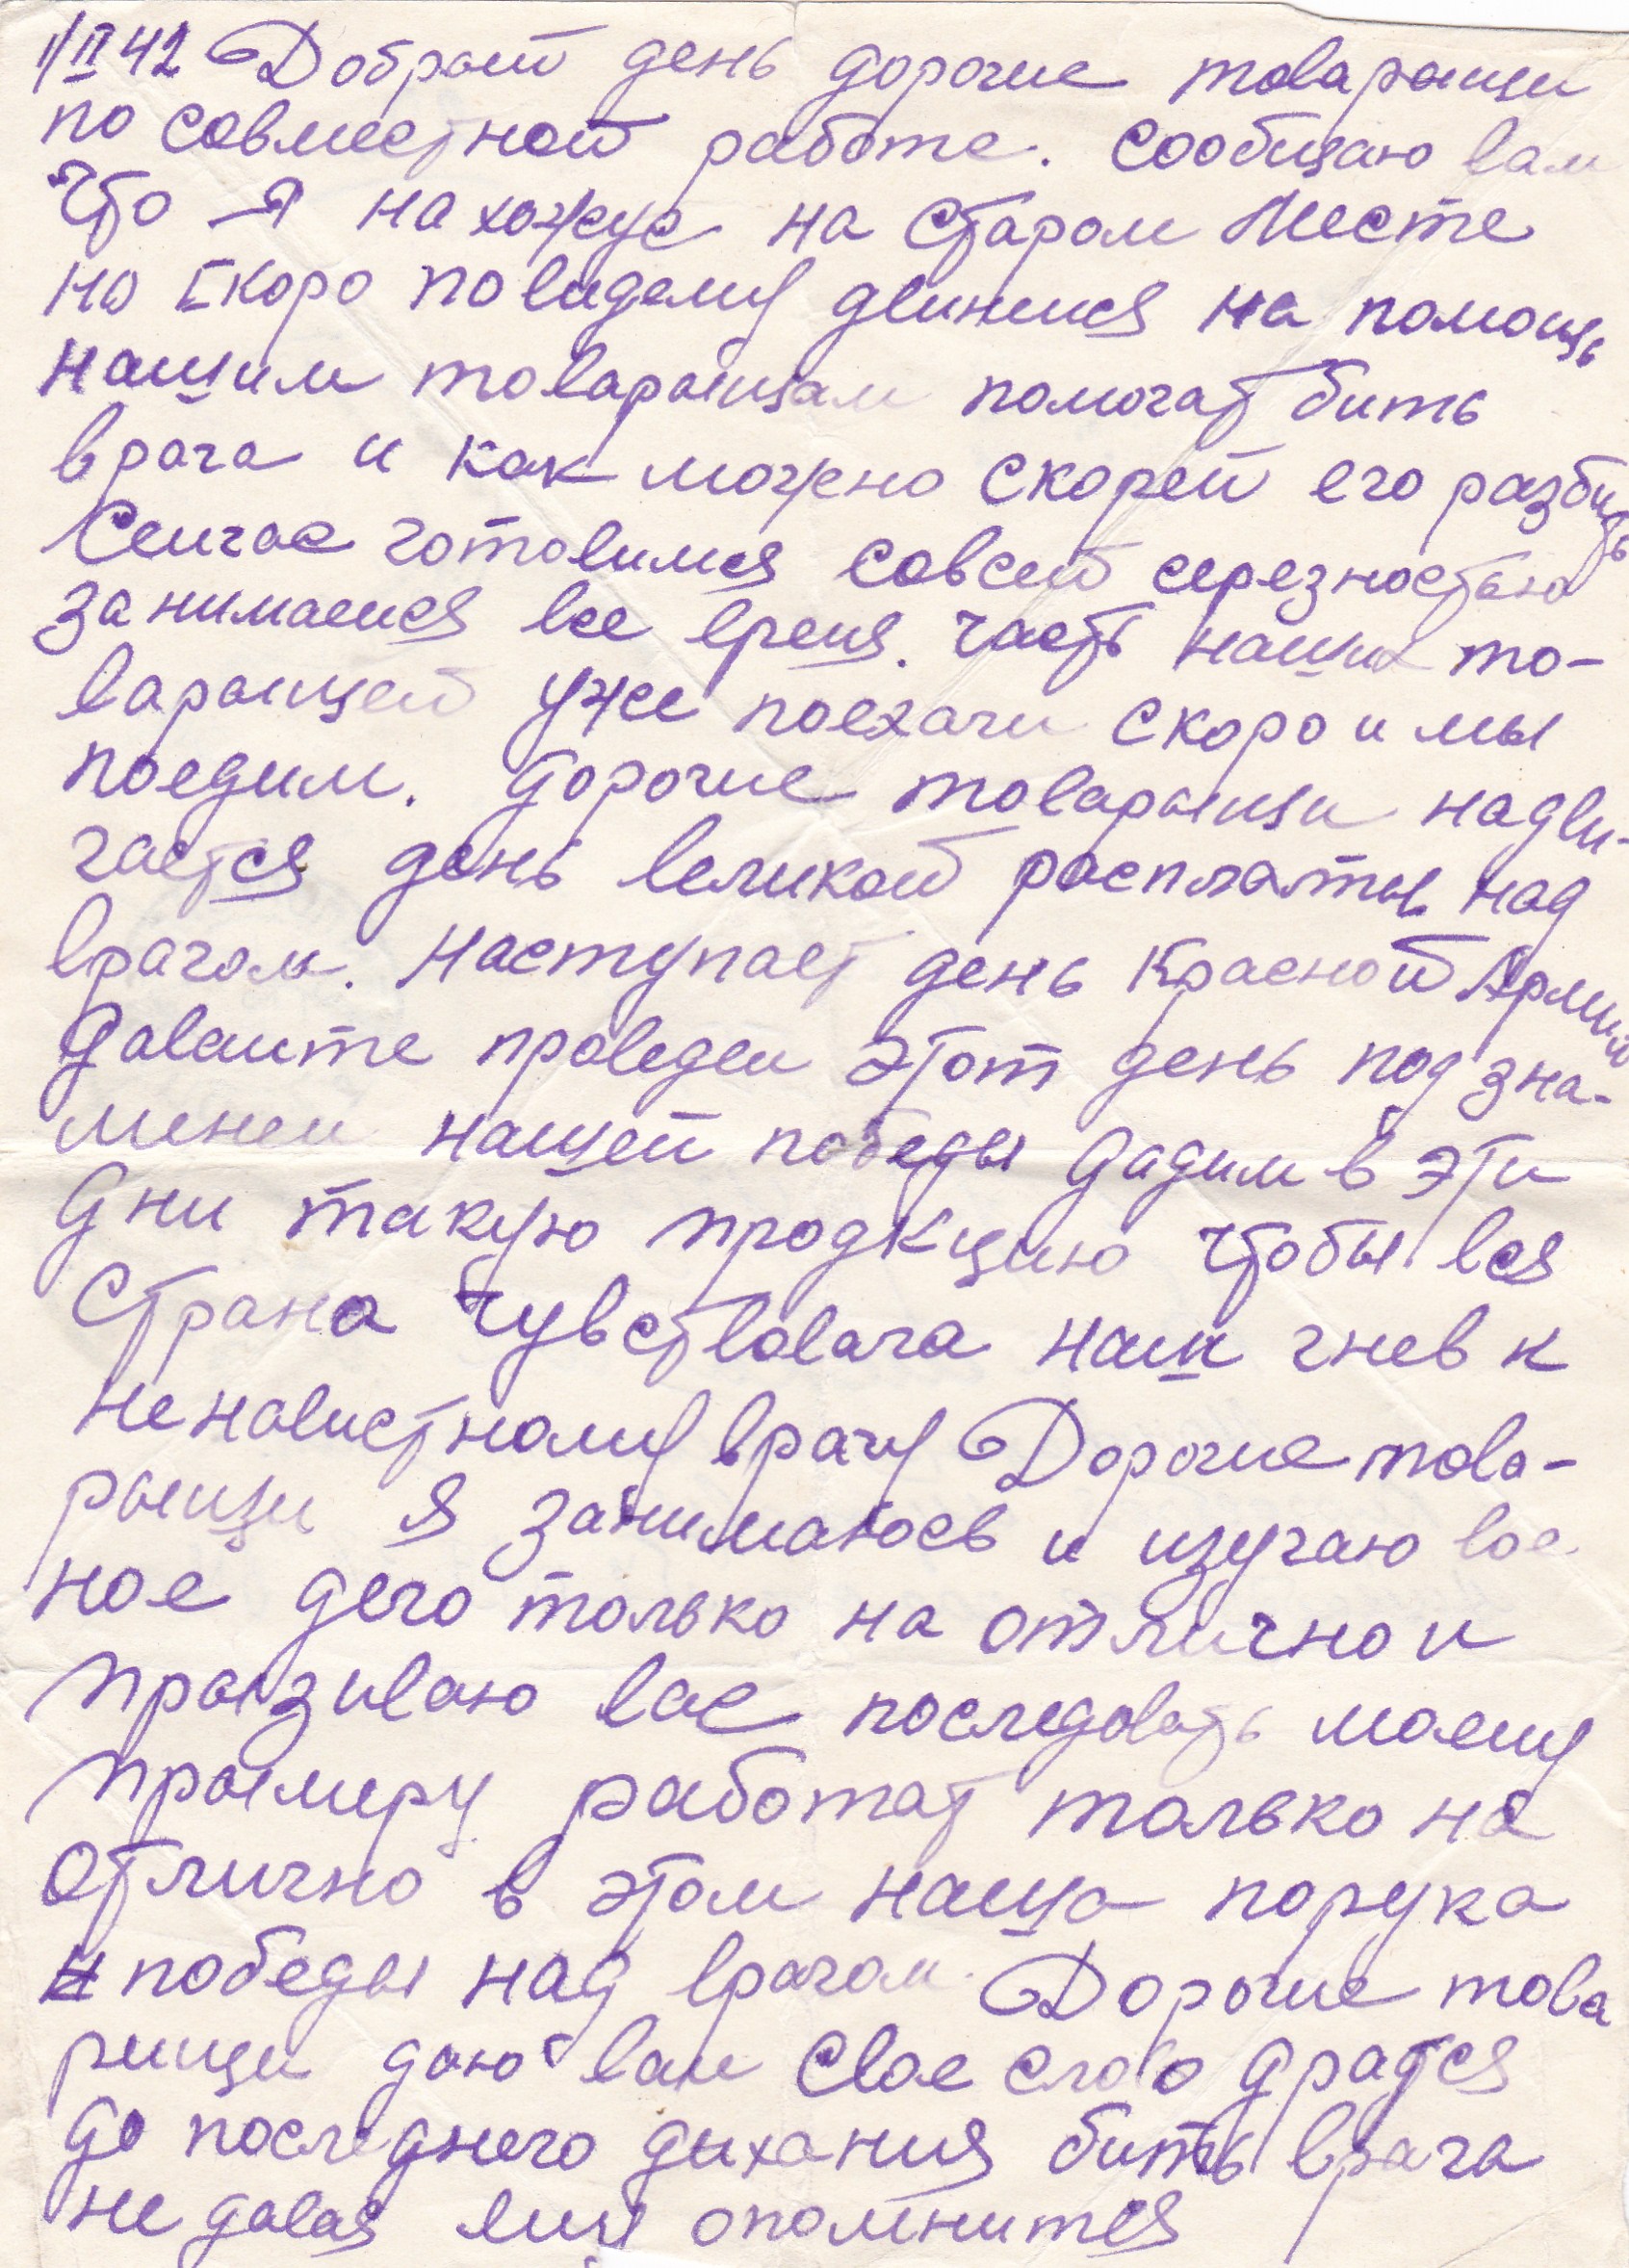 1/II 42 Добрый день дорогие товарыщи
по совместной работе. Сообщаю вам
что я нахожус на старом месте
но скоро повидему двинимся на помощь
нашим товарыщам помогат бить
врага и как можно скорей его разбить
Сейчас готовимся совсей серезностью
занимаемся все время. часть наших то-
варыщей уже поехали скоро и мы
поедим. Дорогие товарыщи надви-
гается день великой расплаты над
врагом. Наступает день Красной Армии
Давайте проведем этот день под зна-
минем нашей победы дадим в эти
дни такую продкцию чтобы вся
страна чувствовала наш гнев к
ненавистному врагу Дорогие това-
рыщи я занимаюсь и изучаю вое
ное дело только на отлично и
прызиваю вас последовать моему
прымеру работат только на
отлично в этом наша порука
и победы над врагом. Дорогие това
рищи даю вам свое слово дратся
до последнего дыхания бить врага
не давая ему опомнится